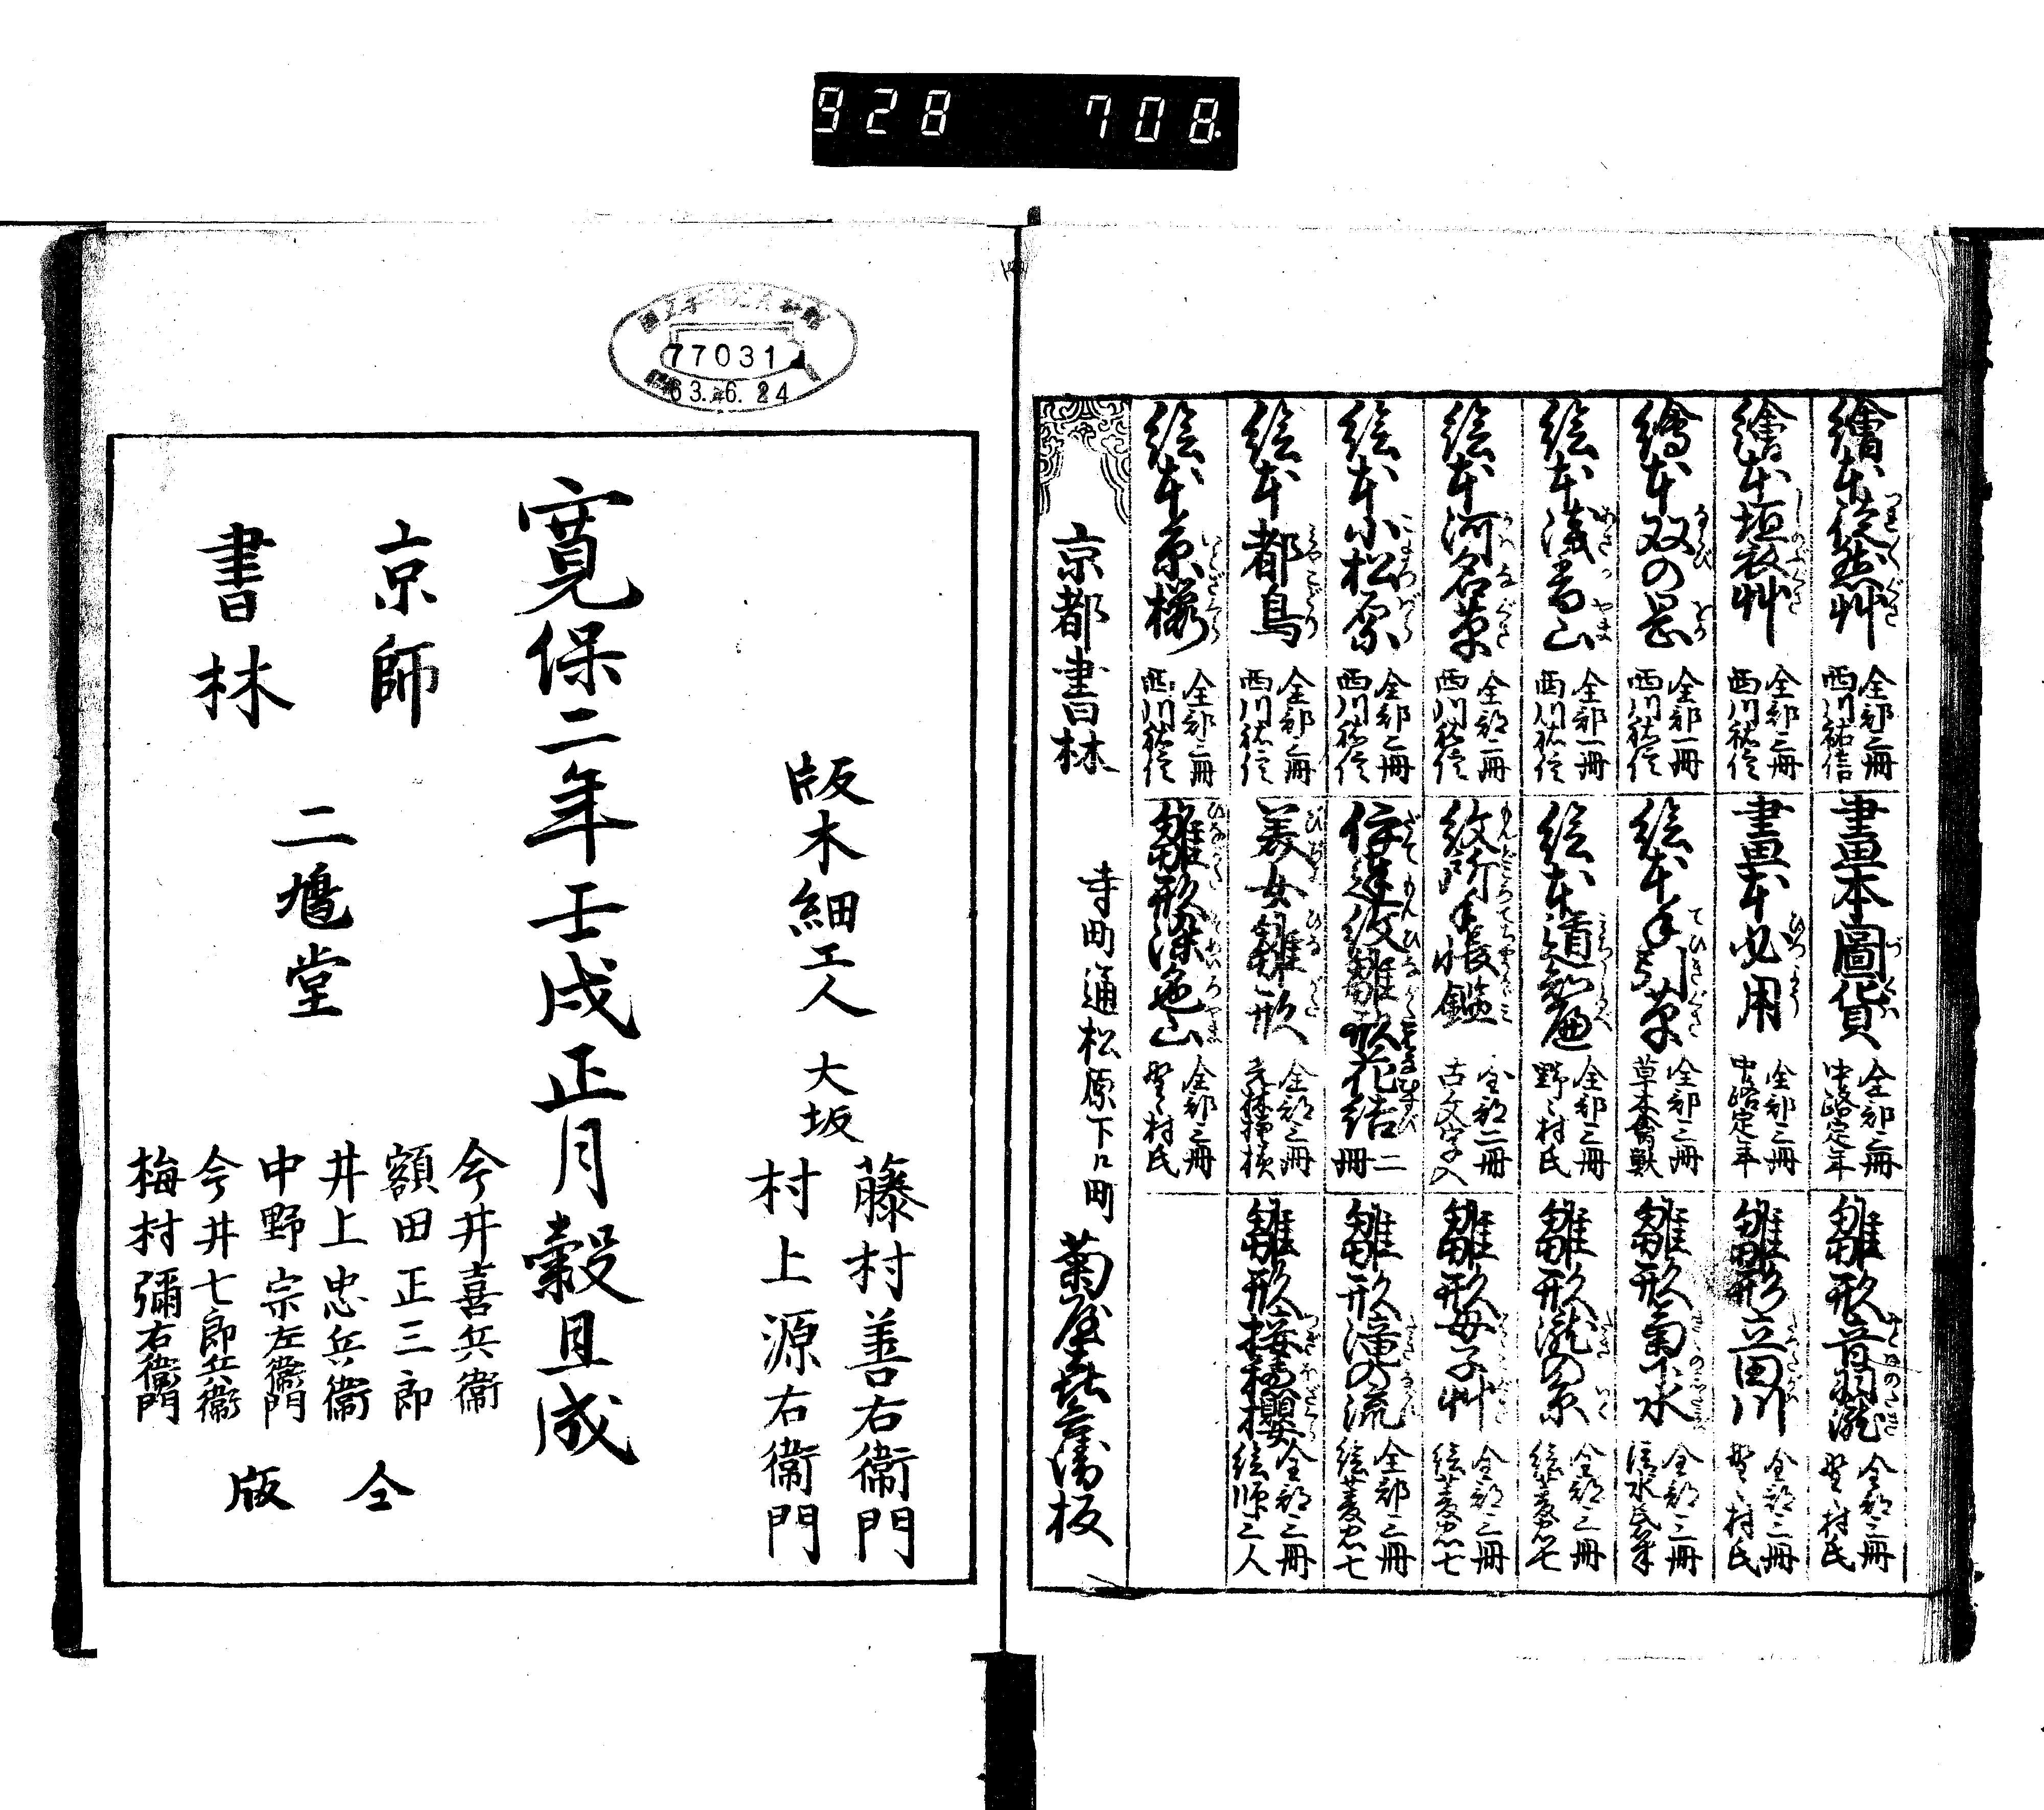 928 708
繪本徒然艸 全部三冊 西川祐信
繪本垣衣艸 全部三冊 西川祐信
繪本双の岡 全部一冊 西川祐信
絵本浅香山 全部一冊 西川祐信
絵本河名草 全部二冊 西川祐信
絵本小松原 全部三冊 西川祐信
絵本都鳥 全部三冊 西川祐信
絵本糸櫻 全部三冊 西川祐信
畫本圖貨 全部三冊 中路定年
畫本必用 全部三冊 中路定年
絵本手引草 全部三冊 草木禽獣
絵本道知邊 全部三冊 野々村氏
紋所手帳鑑 全部二冊 古文字入
伊達紋雛形花結 二冊
美女雛形 全部三冊
雛形染色山 全部三冊 野々村氏
雛形音羽瀧 全部三冊 野々村氏
雛形立田川 全部三冊 野々村氏
雛形菊下水 全部三冊
雛形瀧の糸 全部三冊 絵菱忠七
雛形母子艸 全部三冊 絵菱忠七
雛形滝の流 全部三冊 絵菱忠七
雛形接穂櫻 全部三冊 絵師三人
京都書林 寺町通松原下ル町 菊屋喜兵衛板
77031
63.6.24
版木細工人 大坂 藤村善右衛門
村上源右衛門
寛保二年壬戌正月穀旦成
京師
書林
二酉堂
今井喜兵衛
額田正三郎
井上忠兵衛
中野宗左衛門
今井七郎兵衛
梅村彌右衛門
仝
版